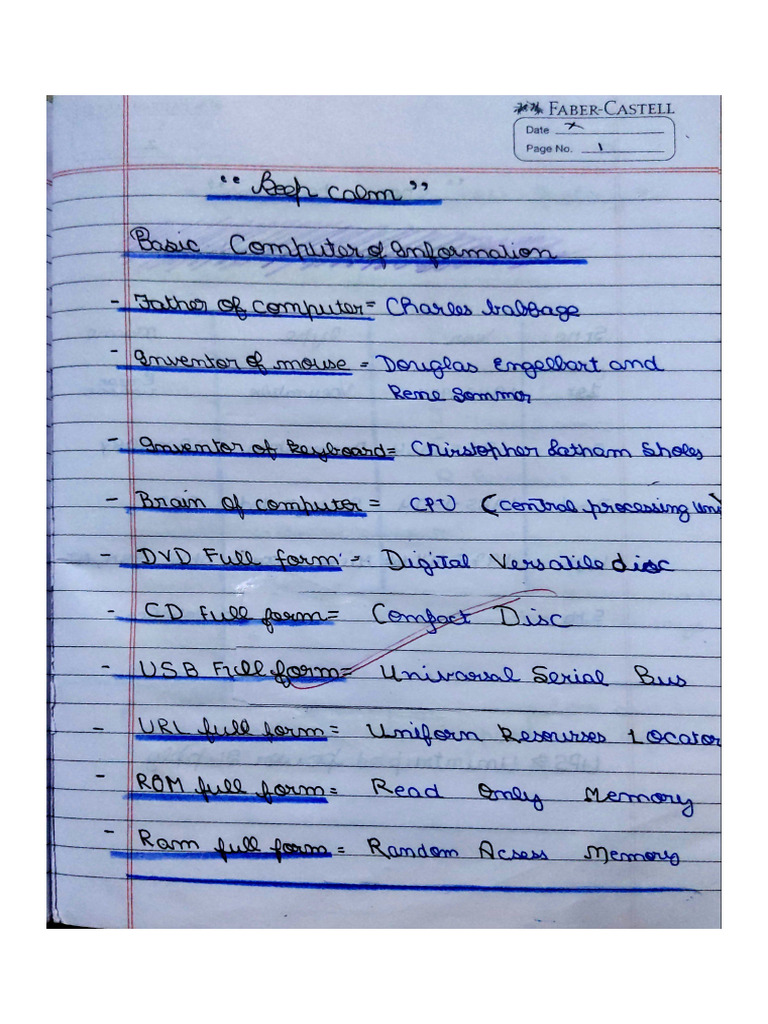 FABER-CASTELL
Date x
Page No. 1
"Keep calm"
Basic Computer of Information
- Father of computer = Charles babbage
- Inventor of mouse = Douglas Engelbart and
Rene Sommor
- Inventor of keyboard = Chirstopher Latham Sholes
- Brain of computer = CPU (central processing uni
- DVD Full form - Digital Versatile disc
- CD full form = Compact Disc
- USB Full form = Univarsal Serial Bus
- URL full form = Uniform Resourses Locator
- ROM full form = Read Only Memory
- Ram full form = Random Acsess Memory